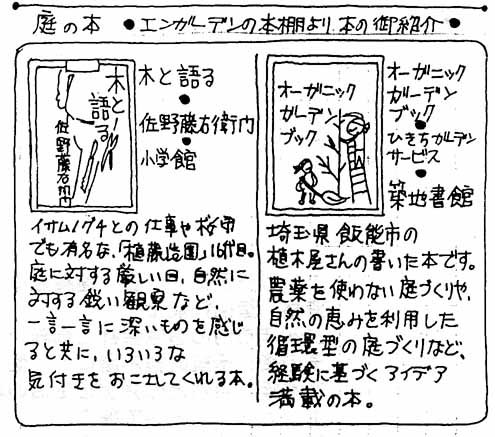 庭の本 ● エンガーデンの本棚より 本の御紹介 ●
木と語る
佐野藤右衛門
木と語る
●
佐野藤右衛門
●
小学館
イサムノグチとの仕事や桜守
でも有名な、「植藤造園」16代目。
庭に対する厳しい目、自然に
対する鋭い観察など、
一言一言に深いものを感じ
ると共に、いろいろな
気付きをおこしてくれる本。
オーガニック
ガーデン
ブック
オーガニック
ガーデン
ブック
●
ひきちガーデン
サービス
●
築地書館
埼玉県飯能市の
植木屋さんの書いた本です。
農薬を使わない庭づくりや、
自然の恵みを利用した
循環型の庭づくりなど、
経験に基づくアイデア
満載の本。